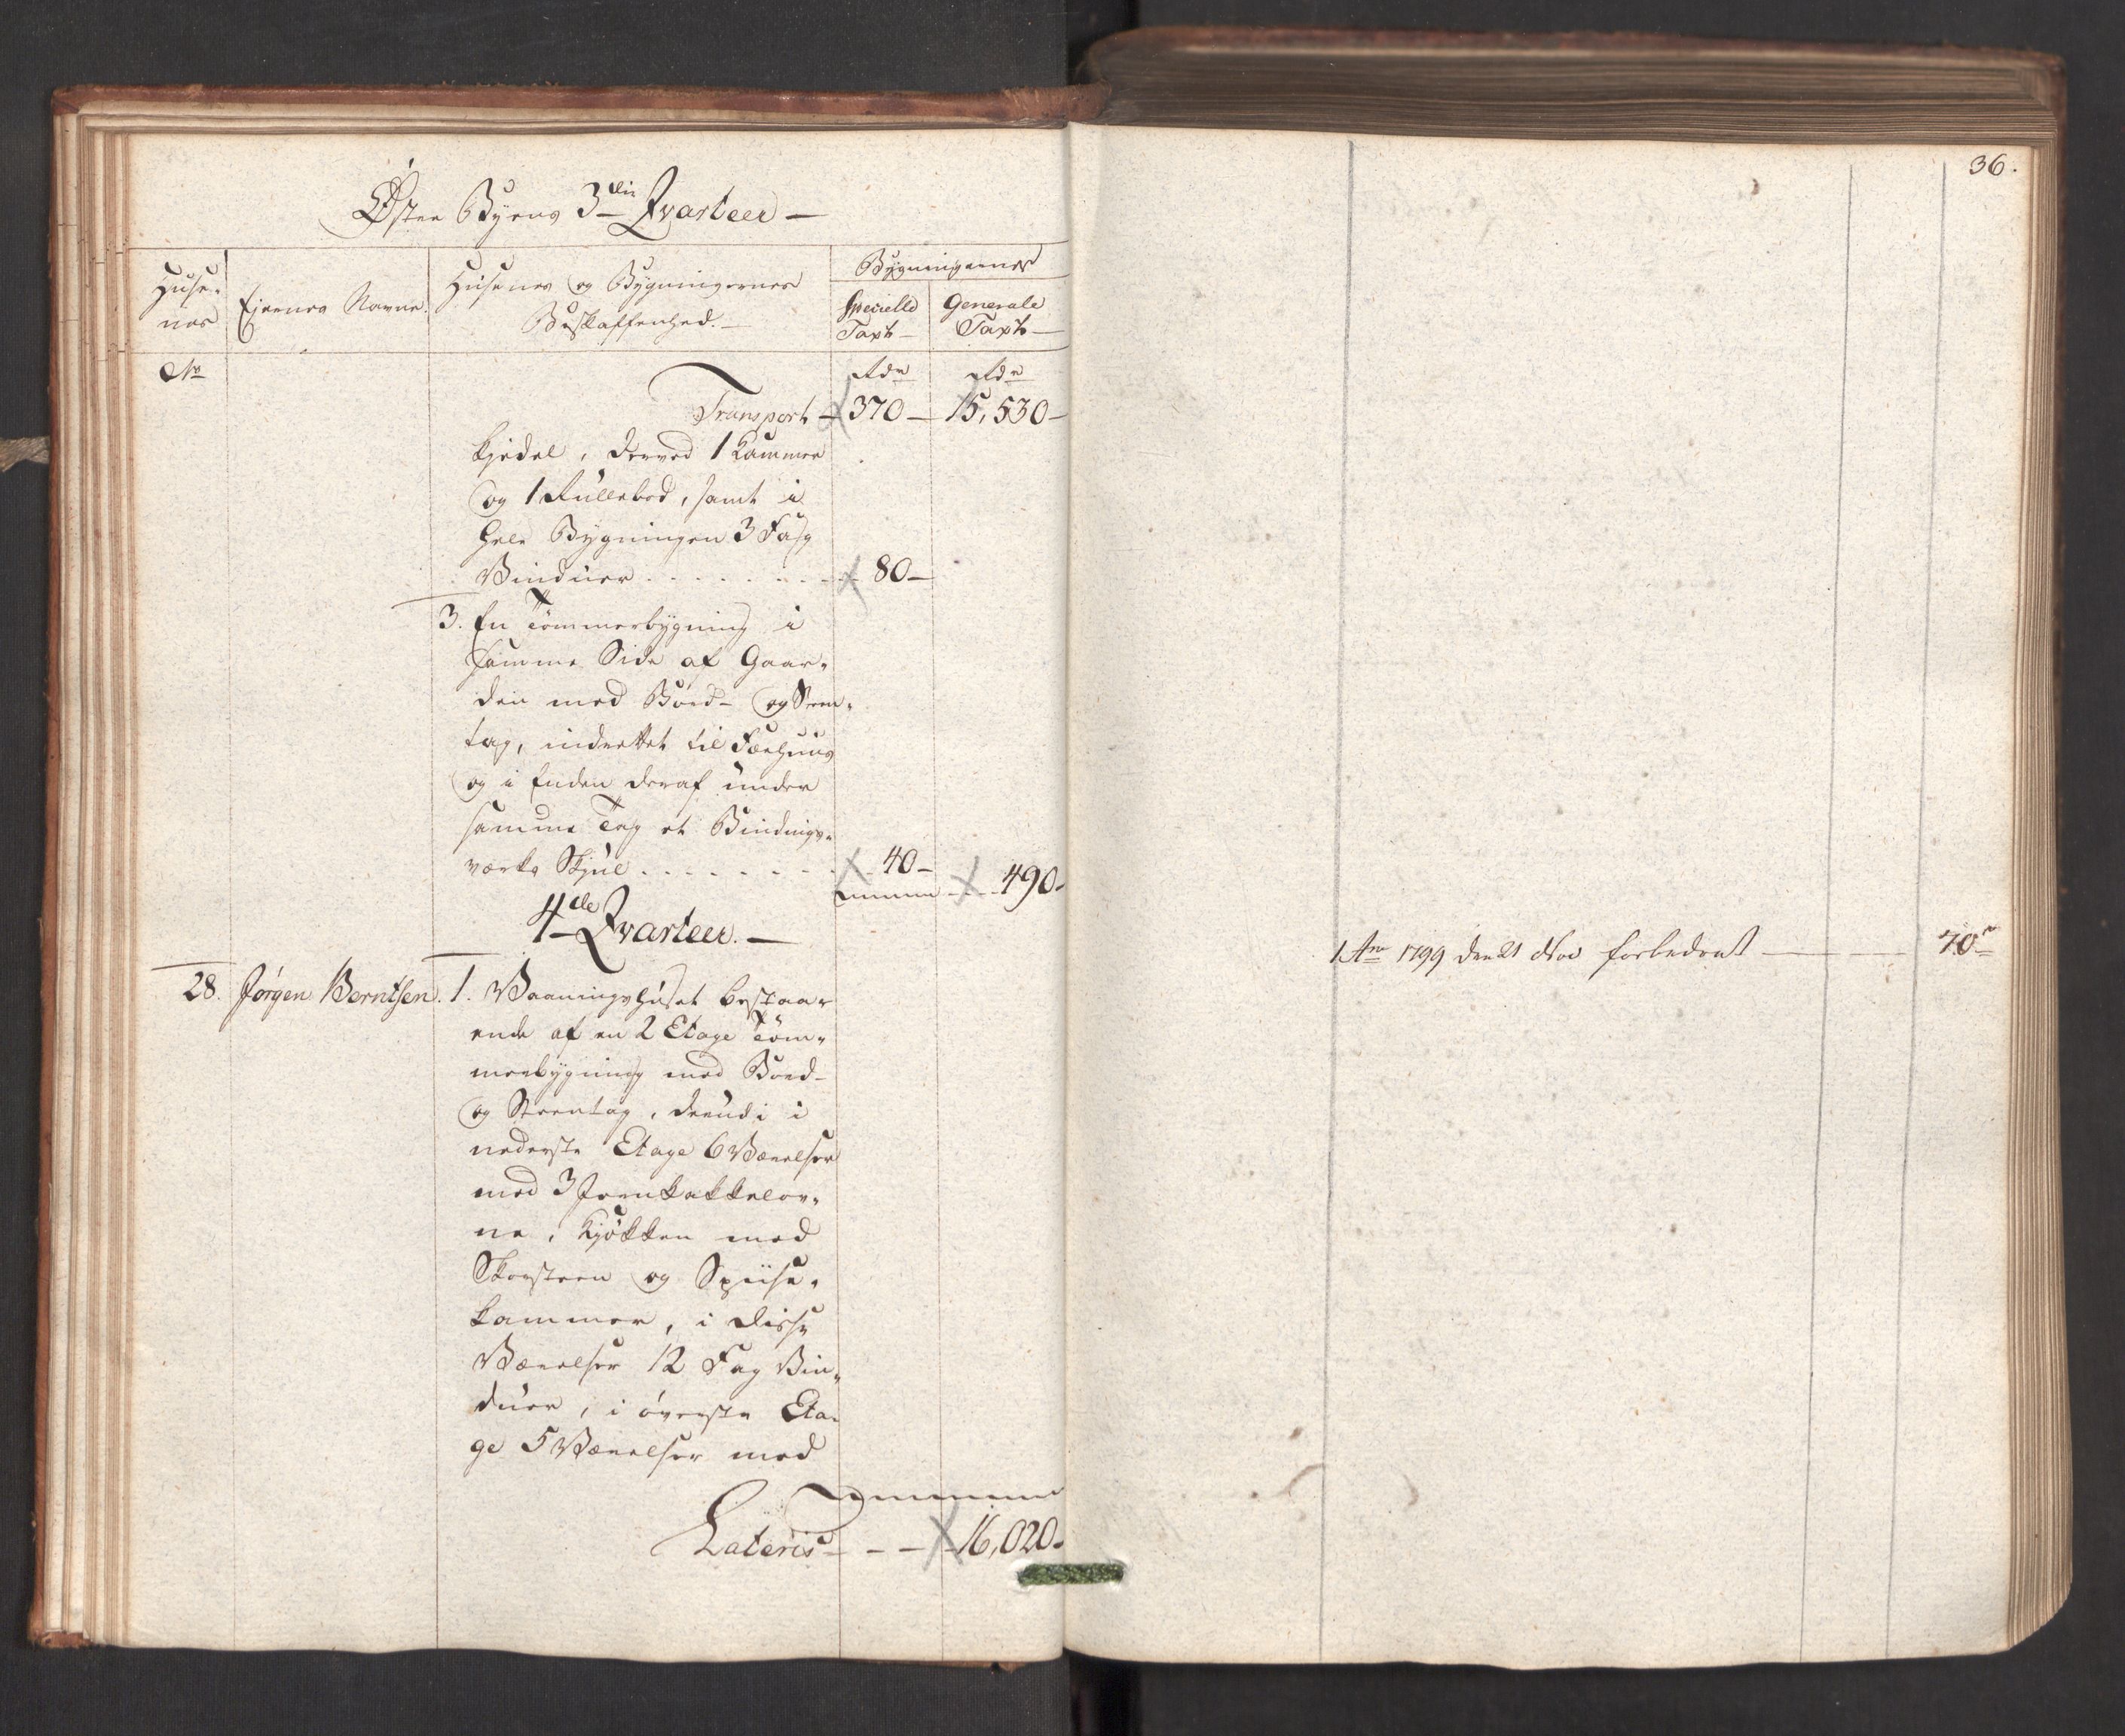 Øster Byens 3die Qvarteer
Huse-
nes
Ejernes Navne.
Husenes og Bygningernes
Beskaffenhed.
Bygningernes
Specielle
Taxt
Generale
Taxt
No
Rdr
Rdr
Transport 370 — 15,530 —
kjedel, derved 1 Kammer
og 1 Rullebod, samt i
hele Bygningen 3 Fag
Vinduer . . . . . . . 80 —
3. En Tømmerbygning i
samme Side af Gaar-
den med Bord- og Steen-
tag, indrettet til Fæehuus
og i Enden deraf under
samme Tag et Bindings-
værks Skjul . . . . . . . 40 —
490 —
4de Qvarteer. —
28. Jørgen Berntsen. 1. Vaaningshuset bestaa-
ende af en 2 Etage Tøm-
merbygning med Bord-
og Steentag, derudi i
nederste Etage 6 Værelser
med 3 Jernkakkelov-
ne, Kjøkken med
Skorsteen og Spiise-
kammer, i disse
Værelser 12 Fag Vin-
duer, i øverste Eta-
ge 5 Værelser med
Lateris — — — 16,020 —
36.
1799 den 21 Nov forbedret — 70